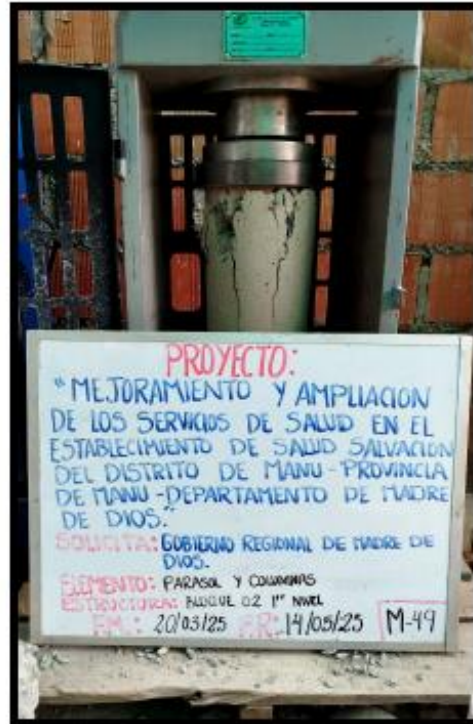 PROYECTO:
"MEJORAMIENTO Y AMPLIACION
DE LOS SERVICIOS DE SALUD EN EL
ESTABLECIMIENTO DE SALUD SALVACIÓN
DEL DISTRITO DE MANU-PROVINCIA
DE MANU-DEPARTAMENTO DE MADRE
DE DIOS."
SOLICITA: GOBIERNO REGIONAL DE MADRE DE
DIOS.
ELEMENTO: PARASOL Y COLUMNAS
ESTRUCTURA: BLOQUE 02 1er NIVEL
F.M.: 20/03/25 F.R: 14/05/25 M-49